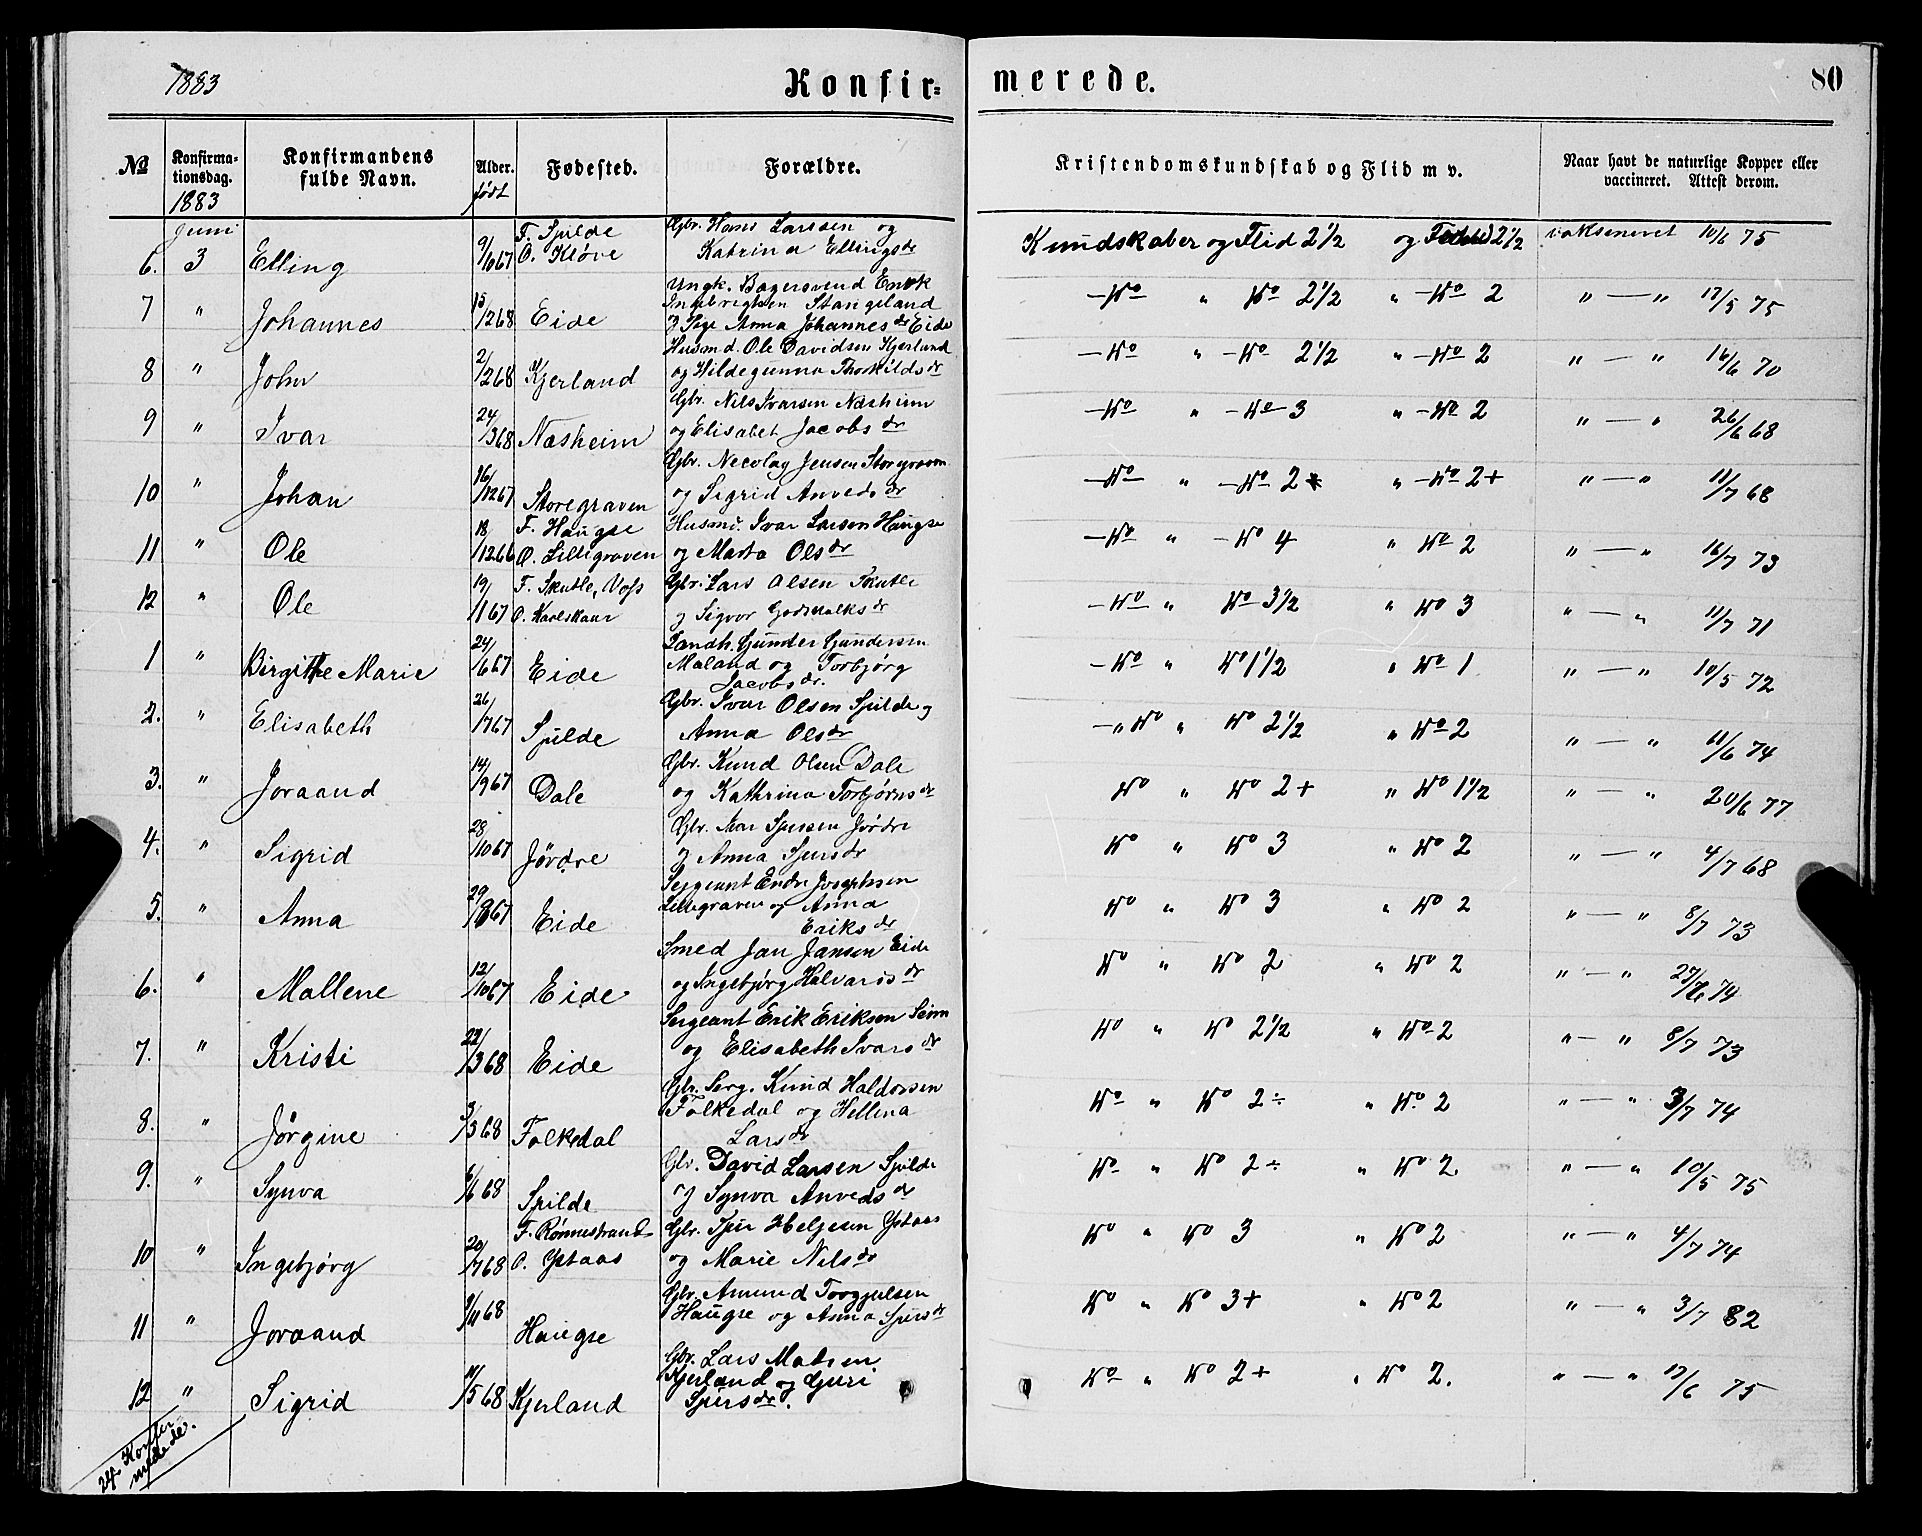 1883 Konfir= merede. 80
№ Konfirma-tionsdag. 1883 Konfirmandens fulde Navn. Alder. født Fødested. Forældre. Kristendomskundskab og Flid m v. Naar havt de naturlige Kopper eller vaccineret. Attest derom.
Juni F. Spilde Gbr. Hans Larssen og
6. 3 Elling 9/6 67 O. Kløve Katrina Ellingsdr Kundskaber og Flid 2 1/2 og 2 1/2 vaksineret 10/6 75
Ungk. Bagersvend Enok
7 " Johannes 15/12 68 Eide Ingebrigtsen Stangeland — Do " Do 2 1/2 " — Do 2 " — " 17/5 75
Pige Anna Johannesdr Eide
Husmd. Ole Davidsen Kjerland
8 " John 2/2 68 Kjerland og Hildegunna Thorkildsdr — Do " — Do 2 1/2 " — Do 2 " — " 16/6 70
Gbr. Nils Ivarsen Næsheim
9 " Ivar 24/3 68 Næsheim og Elisabet Jacobsdr — Do " — Do 3 " — Do 2 " — " 26/6 68
Gbr. Necolay Jensen Storegraven
10 " Johan 16/12 67 Storegraven og Sigrid Anvedsdr — Do " — Do 2 " — Do 2+ " — " 11/7 68
F. Haugse Husmd. Ivar Larsen Haugse
11 " Ole 18/12 66 O. Lillegraven og Marta Olsdr — Do " — Do 4 " Do 2 " — " 16/7 73
F. Skutle, Voss Gbr. Lars Olsen Skutle
12 " Ole 19/1 67 O. Karlskaar og Sigvor Godskalksdr — Do " Do 3 1/2 " Do 3 " — " 11/7 71
Landh. Gunder Gundersen
1 " Birgithe Marie 24/6 67 Eide Maland og Torbjørg — Do " Do 1 1/2 " Do 1 " — " 10/5 72
Jacobsdr.
Gbr. Ivar Olsen Spilde og
2. " Elisabeth 26/7 67 Spilde Anna Olsdr — " Do " Do 2 1/2 " Do 2 " — " 11/6 74
Gbr. Knud Olsen Dale
3. " Joraand 14/9 67 Dale og Kathrina Torbjørnsdr Do " Do 2+ " Do 1 1/2 " — " 20/6 77
Gbr. Sjursen Jørdre
4. " Sigrid 28/10 67 Jørdre og Anna Sjursdr Do " Do 3 " Do 2 " — " 4/7 68
Sergeant Endre Josephsen
5. " Anna 29/ 67 Eide Lillegraven og Anna Do " Do 3 " Do 2 " — " 8/7 73
Eriksdr
Smed Jan Jansen Eide
6. " Mallene 12/10 67 Eide og Ingebjørg Halvarsdr Do " Do 2 " Do 2 " — " 27/6 74
Sergeant Erik Eriksen Seim
7. " Kristi 22/3 68 Eide og Elisabeth Ivarsdr Do " Do 2 1/2 " Do 2 " — " 8/7 73
Gbr. Serg. Knud Haldorsen
8. " Jørgine 3/3 68 Folkedal Folkedal og Hellena Do " Do 2÷ " Do 2 " — " 3/7 74
Larsdr
Gbr. David Larsen Spilde
9. " Synva 6/6 68 Spilde og Synva Anvedsdr Do " Do 2÷ " Do 2 " — " 10/5 75
F. Rønnestrand Gbr. Sjur Helgesen Ystaas
10 " Ingebjørg 20/7 68 O. Ystaas og Marie Nilsdr Do " Do 3 " Do 2 " — " 4/7 74
Gbr. Amund Torgjulsen
11 " Joraand 9/11 68 Haugse Haugse og Anna Sjursdr Do " Do 3+ " Do 2 " — " 3/7 82
Gbr. Lars Matsen
12 " Sigrid 11/5 68 Kjerland Kjerland og Guri Do " Do 2+ " Do 2. " — " 17/6 75
Sjursdr.
24 Konfir-
merede.